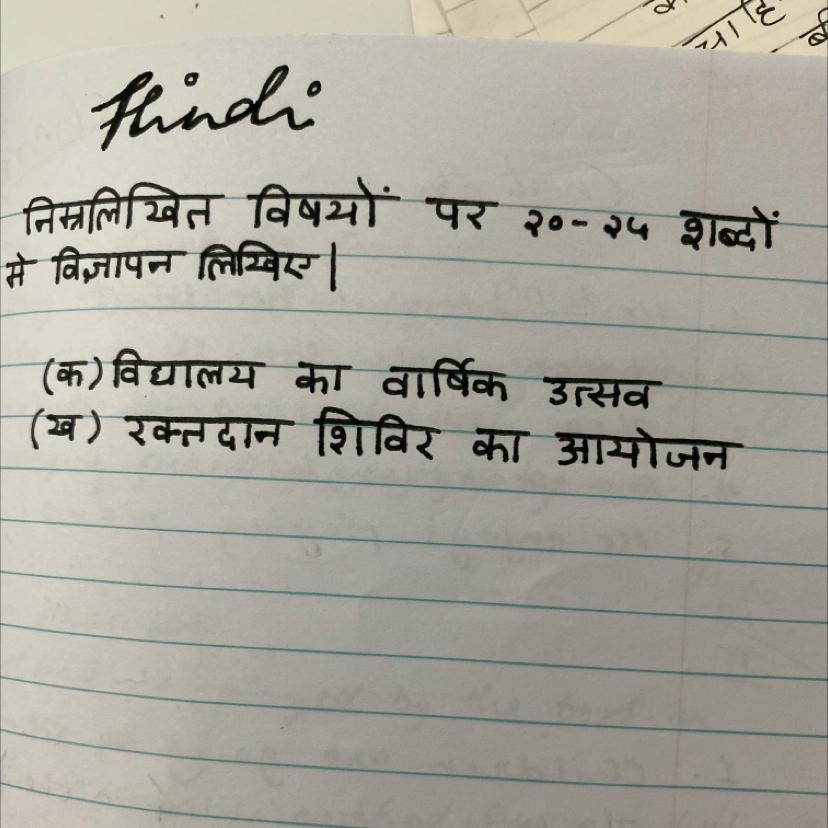 Hindi
निम्नलिखित विषयों पर २०-२५ शब्दों
मे विज्ञापन लिखिए|
(क) विद्यालय का वार्षिक उत्सव
(ख) रक्तदान शिविर का आयोजन